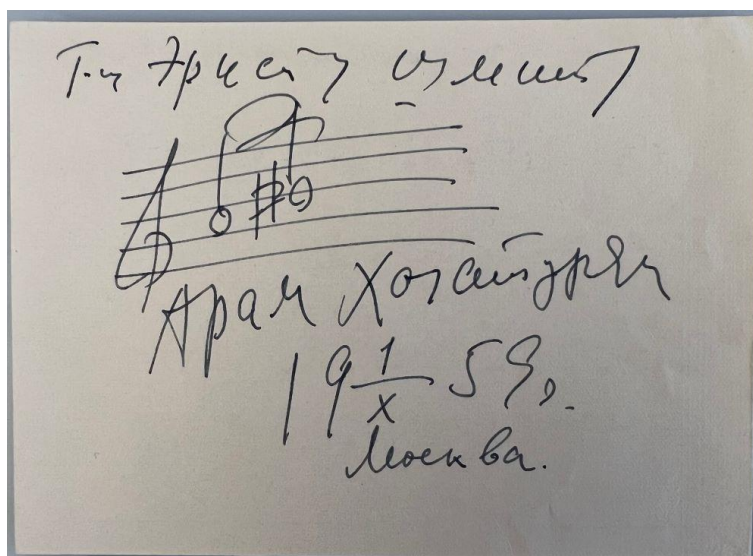 Т-щ Эрнсту Шмит
Арам Хачатурян
19 1/X 59 г.
Москва.